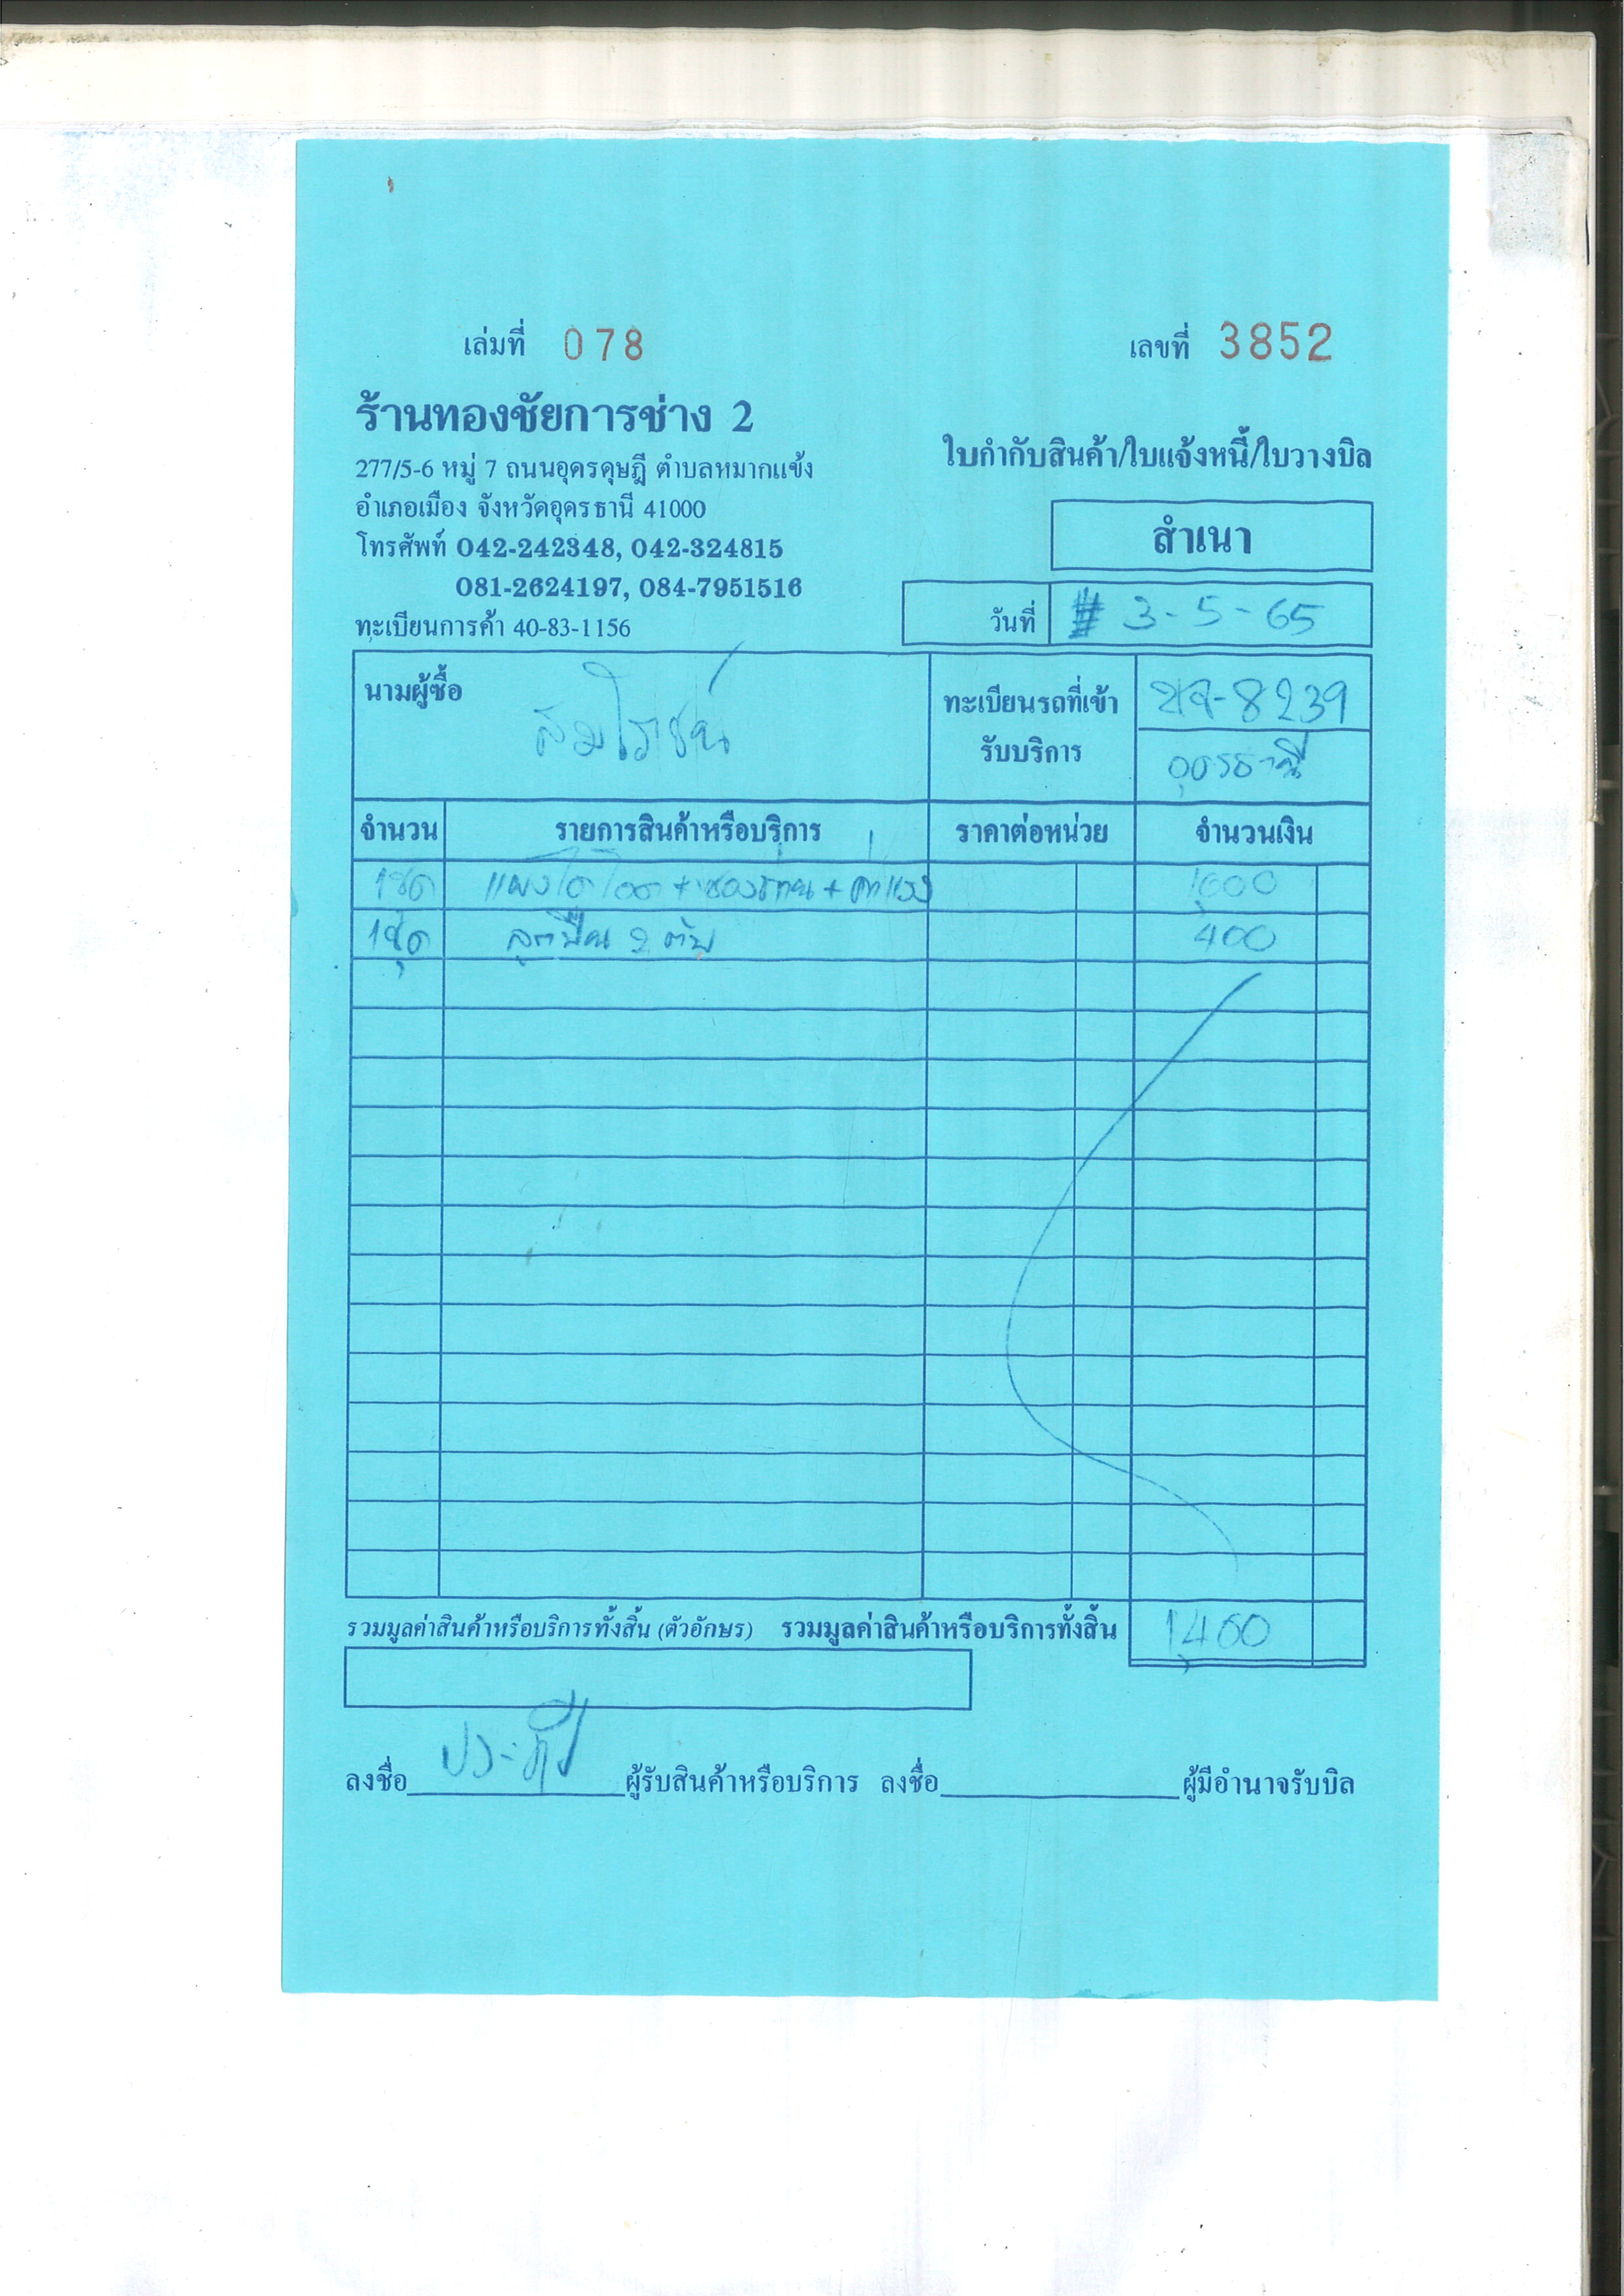 เล่มที่ 078 เลขที่ 3852
ร้านทองชัยการช่าง 2
277/5-6 หมู่ 7 ถนนอุดรดุษฎี ตำบลหมากแข้ง
อำเภอเมือง จังหวัดอุดรธานี 41000
โทรศัพท์ 042-242348, 042-324815
081-2624197, 084-7951516
ทะเบียนการค้า 40-83-1156
ใบกำกับสินค้า/ใบแจ้งหนี้/ใบวางบิล
สำเนา
วันที่ 3-5-65
นามผู้ซื้อ
ทะเบียนรถที่เข้ารับบริการ 8239
อุดรธานี
จำนวน รายการสินค้าหรือบริการ ราคาต่อหน่วย จำนวนเงิน
1ชุด แผงไดโอด + ซองถ่าน + ค่าแรง 1,000
1ชุด ลูกปืน 2 ตับ 400
รวมมูลค่าสินค้าหรือบริการทั้งสิ้น (ตัวอักษร) รวมมูลค่าสินค้าหรือบริการทั้งสิ้น 1,400
ลงชื่อ ผู้รับสินค้าหรือบริการ ลงชื่อ ผู้มีอำนาจรับบิล